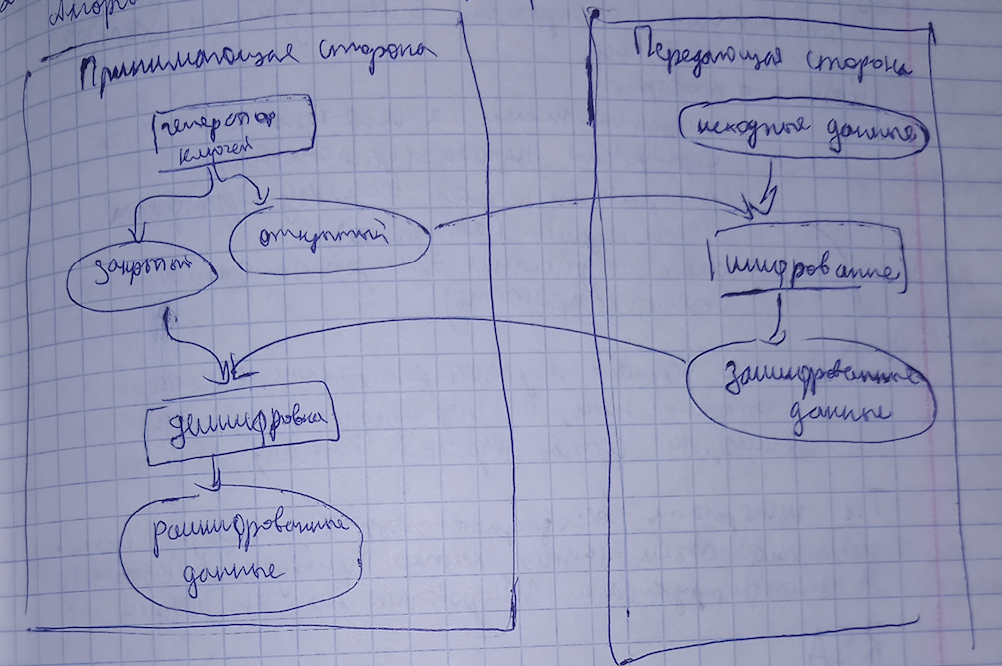 Алгор
Принимающая сторона
генератор
ключей
закрытый
открытый
дешифровка
расшифрованные
данные
Передающая сторона
исходные данные
шифрование
зашифрованные
данные